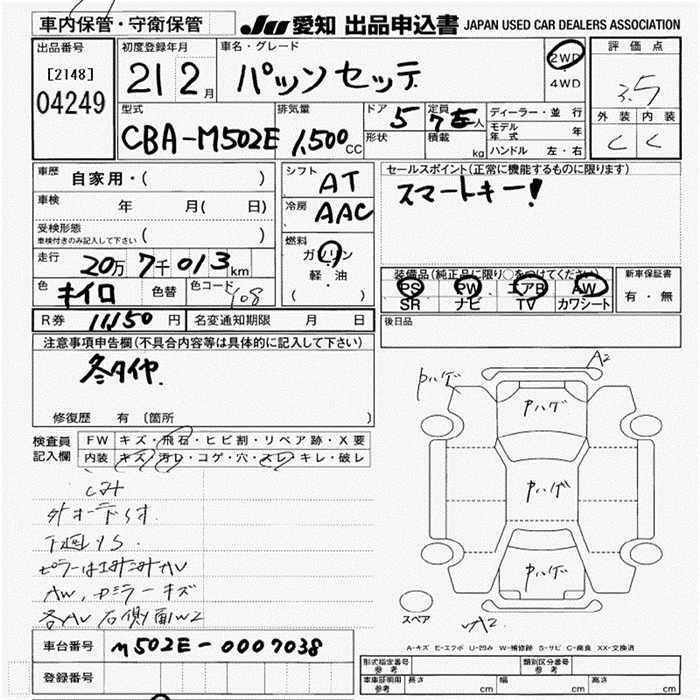 車内保管・守衛保管
JU 愛知 出品申込書 JAPAN USED CAR DEALERS ASSOCIATION
出品番号
[2148]
04249
初度登録年月
21 2 月
車名・グレード
パッソセッテ
2WD
4WD
評価点
3.5
外装 内装
C C
型式
CBA-M502E
排気量
1,500 CC
ドア
5
定員
7 人
形状
積載
kg
ディーラー・並行
モデル年式 年
ハンドル 左・右
車歴 自家用・( )
車検 年 月( 日)
受検形態
車検付きのみ記入して下さい ( )
走行 20万 7千 013 km
色 キイロ 色替 色コード
R券 11,150 円 名変通知期限 月 日
シフト AT
冷房 AAC
燃料
ガソリン
軽・油
( )
セールスポイント(正常に機能するものに限ります)
スマートキー!
装備品(純正品に限り○をつけてください)
PS PW エアB AW
SR ナビ TV カワシート
新車保証書
有・無
後日品
注意事項申告欄(不具合内容等は具体的に記入して下さい)
冬タイヤ
修復歴 有 (箇所 )
検査員
記入欄
FW キズ・飛石・ヒビ割・リペア跡・X要
内装 キズ・汚レ・コゲ・穴・スレ・キレ・破レ
下廻りS.
AW, ドアミラーキズ
各AV 右側面W2
A2
Pハゲ
Pハゲ
Pハゲ
Pハゲ
スペア
A2
A-キズ E-エクボ U-凹み W-補修跡 S-サビ C-腐食 XX-交換済
車台番号 M502E-0007038
登録番号
形式指定番号
参考
類別区分番号
参考
車庫証明用
参考
長さ cm 幅 cm 高さ cm